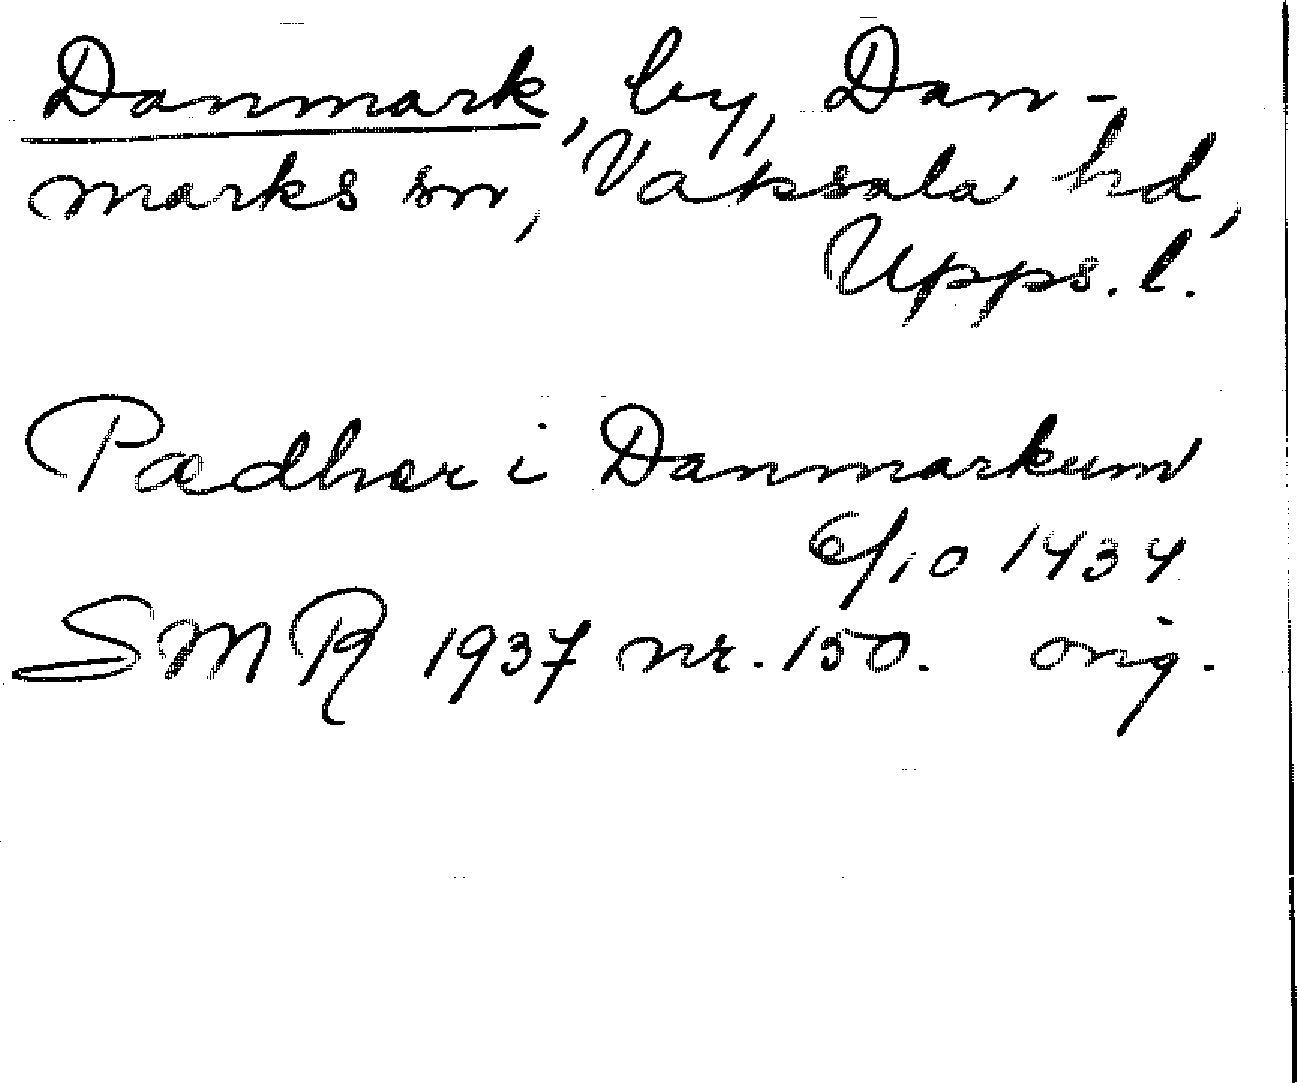 Danmark, by, Dan-
marks sn, Vaksala hd,
Upps. l.
Pædhar i Danmarkum
6/10 1434
SMR 1937 nr. 150. orig.